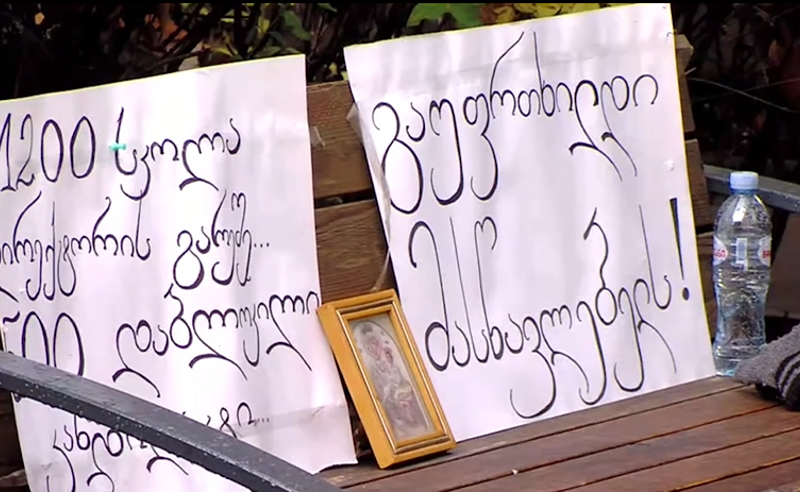 1200 სკოლა
დირექტორის გარეშე...
500 დაბლოკილი
გაუფრთხილდი
მასწავლებელს!